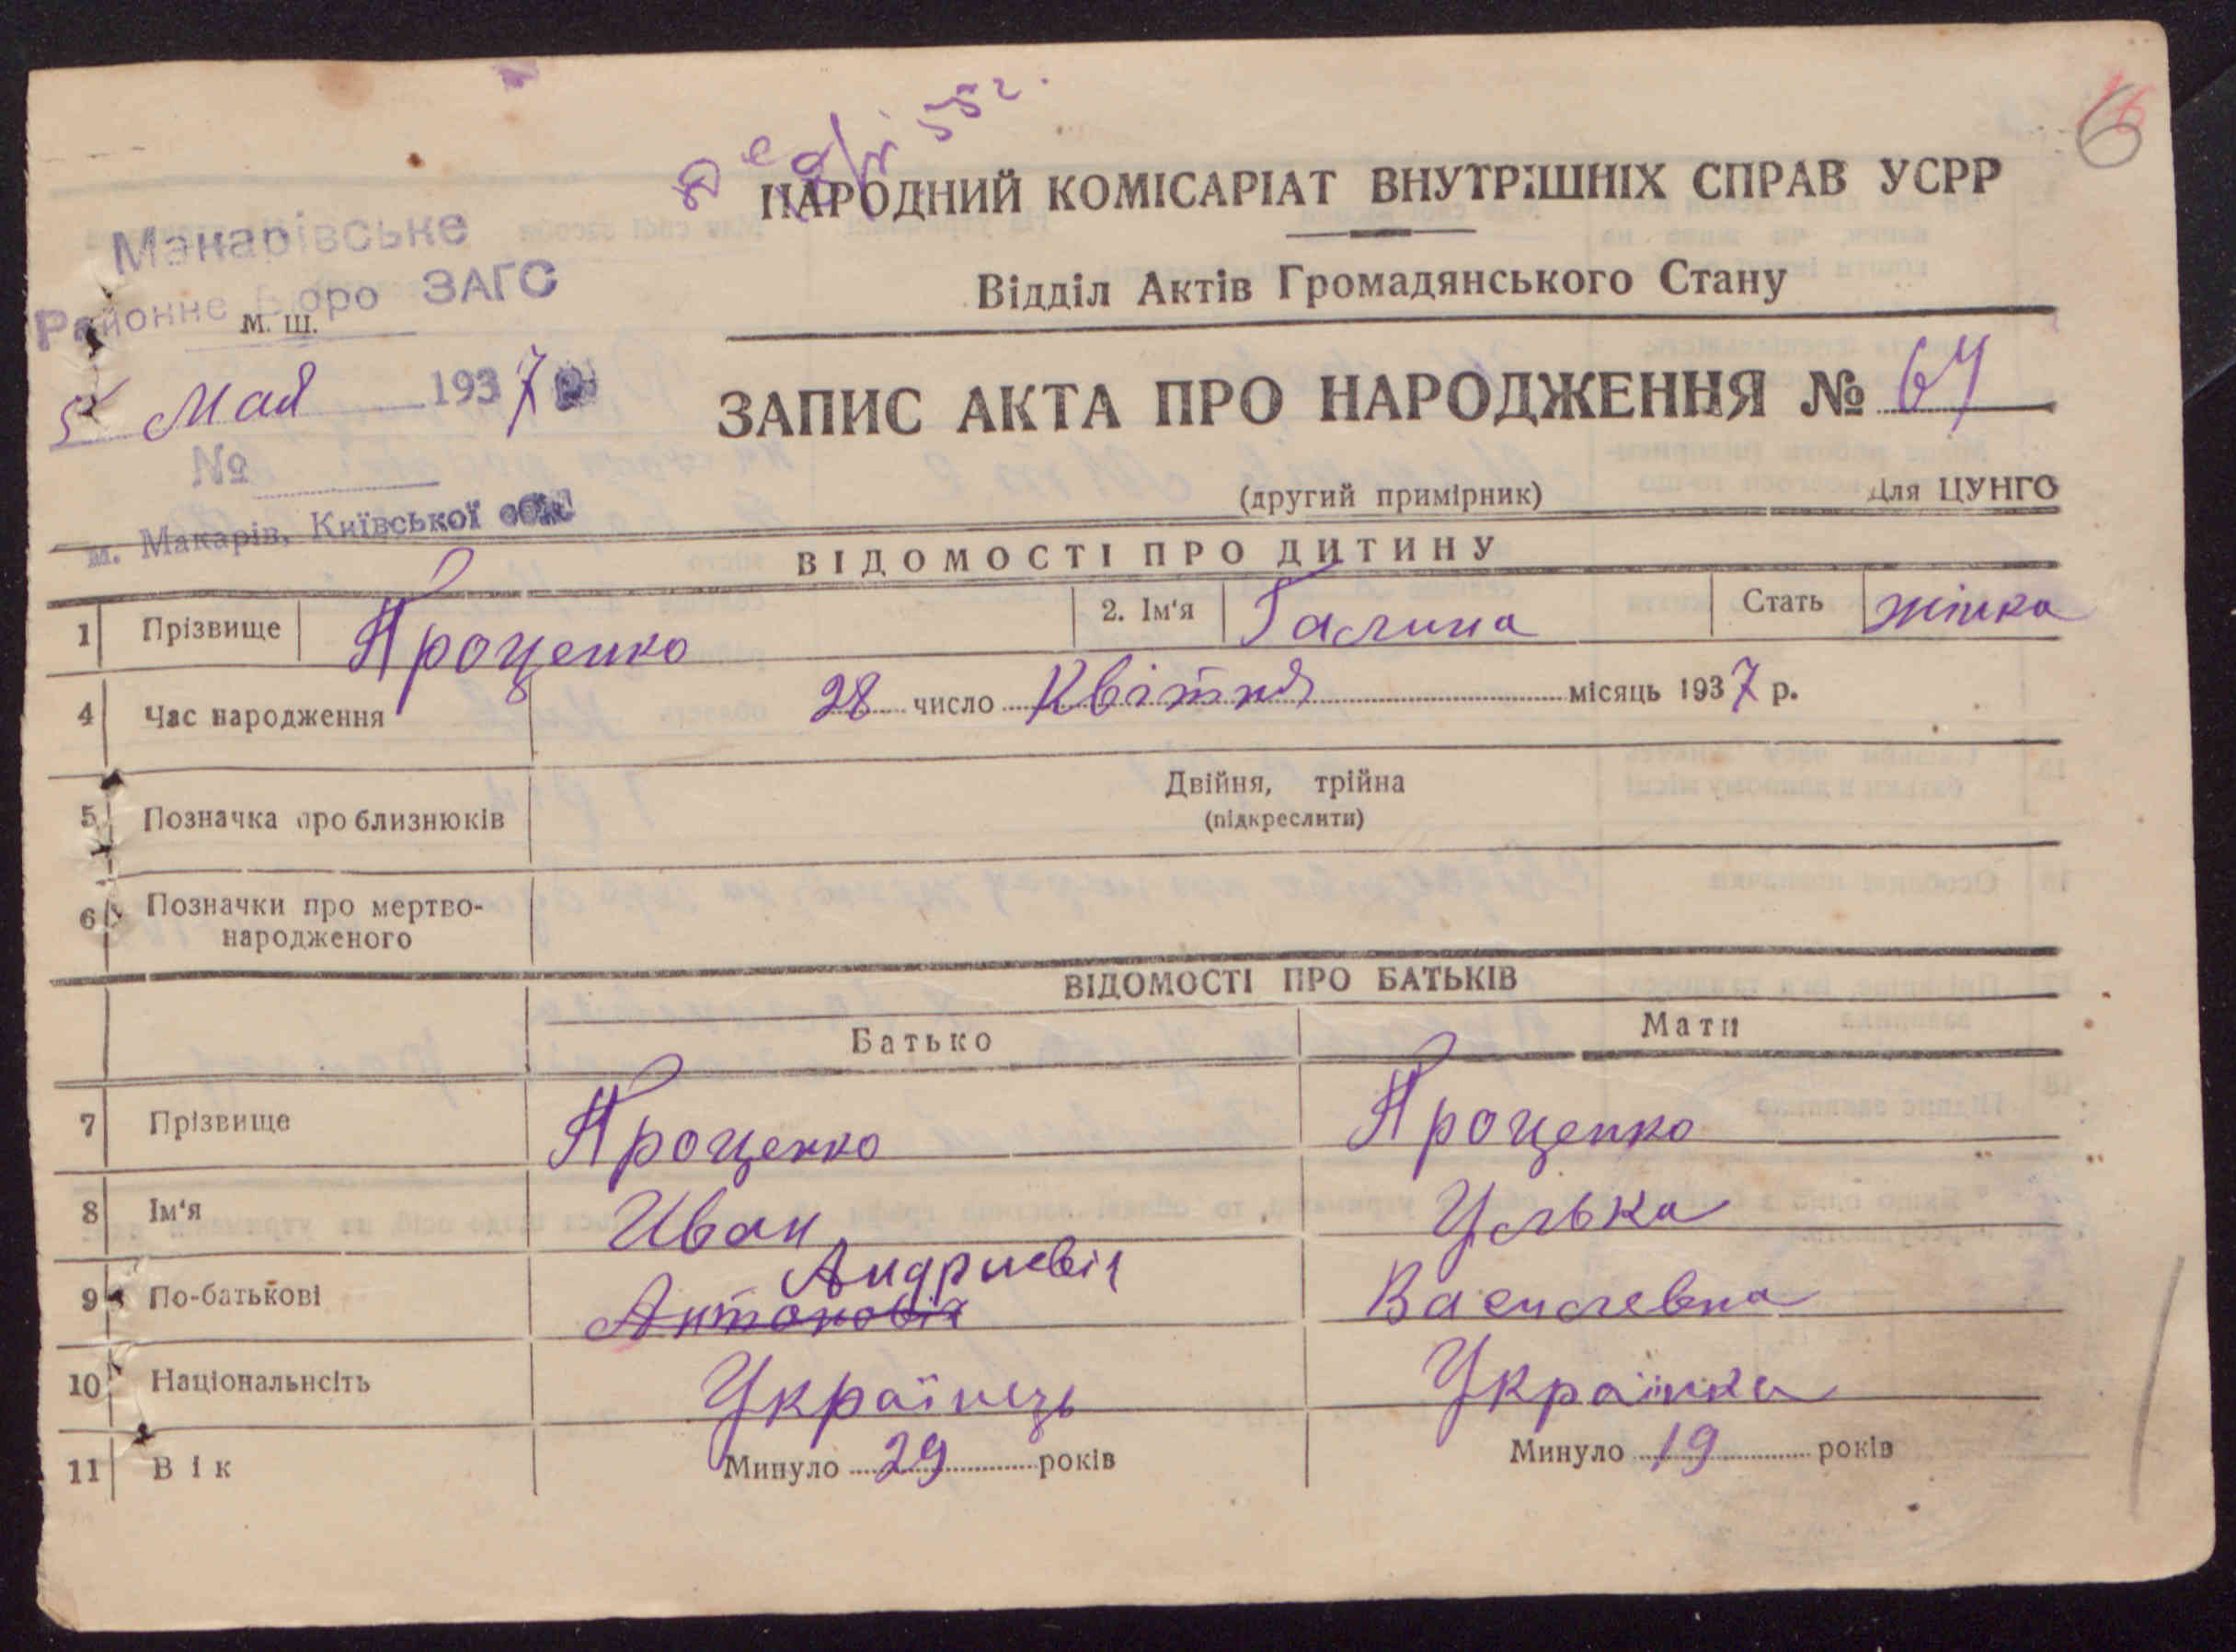 55 г.
6
НАРОДНИЙ КОМІСАРІАТ ВНУТРІШНІХ СПРАВ УСРР
Відділ Актів Громадянського Стану
Макарівське
Районне Бюро ЗАГС
м. ш.
5 Мая 1937 р.
№
м. Макарів, Київської обл.
ЗАПИС АКТА ПРО НАРОДЖЕННЯ № 64
(другий примірник) Для ЦУНГО
ВІДОМОСТІ ПРО ДИТИНУ
1 Прізвище Проценко 2. Ім'я Галина Стать жінка
4 Час народження 28 число Квітня місяць 1937 р.
5 Позначка про близнюків Двійня, трійна
(підкреслити)
6 Позначки про мертво-
народженого
ВІДОМОСТІ ПРО БАТЬКІВ
Батько Мати
7 Прізвище Проценко Проценко
8 Ім'я Иван Улька
Андриевіч
9 По-батькові Антоновіч Василевна
10 Національнсіть Українець Українка
11 Вік Минуло 29 років Минуло 19 років